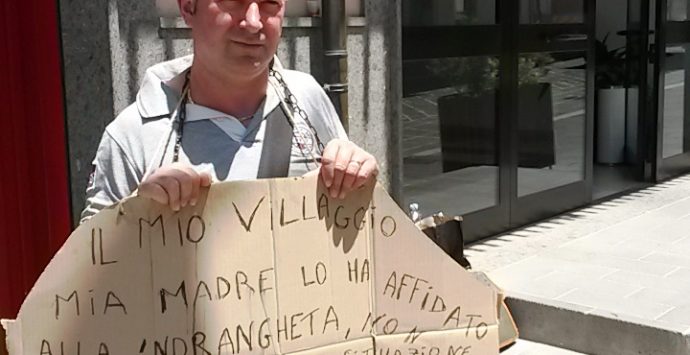 IL MIO VILLAGGIO
MIA MADRE LO HA AFFIDATO
ALLA 'NDRANGHETA, NON
SITUAZIONE